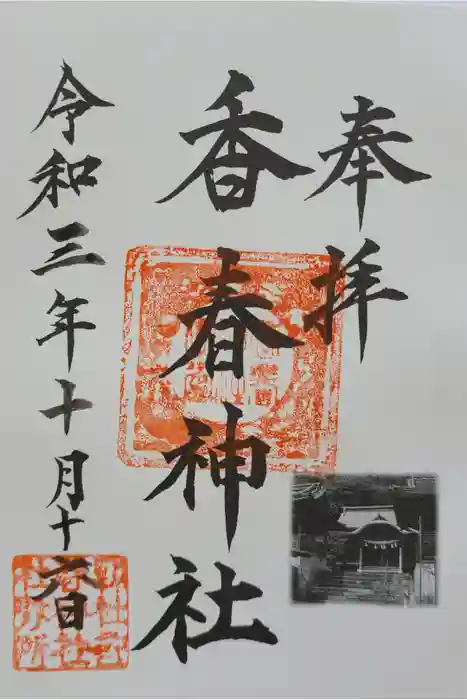 奉拝
香春神社
令和三年十月十六日